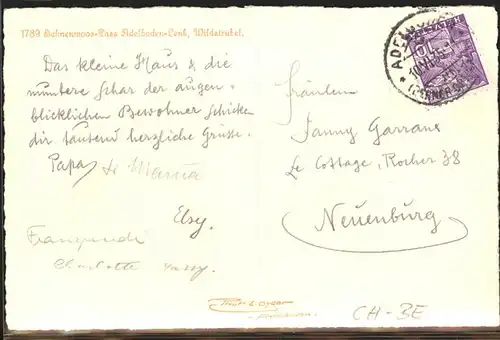 1789 Hahnenmoos-Pass Adelboden-Lenk, Wildstrubel.
Das kleine Haus & die
muntere Schar der augen-
blicklichen Bewohner schicken
dir tausend herzliche Grüsse.
Papa, & Mama
Elsy.
Charlotte
Fräulein
Fanny Garraux
Le Cottage, Rocher 38
Neuenburg
ADELBODEN
HELVETIA
10
CH-BE